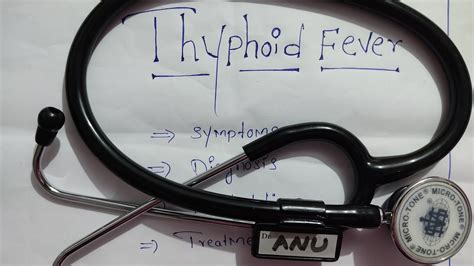 Thyphoid Fever
⇒ Symptoms
⇒ Diagnosis
⇒ Treatme
Dr. ANU
MICRO-TONE® MICRO-TONE® MICRO-TONE®